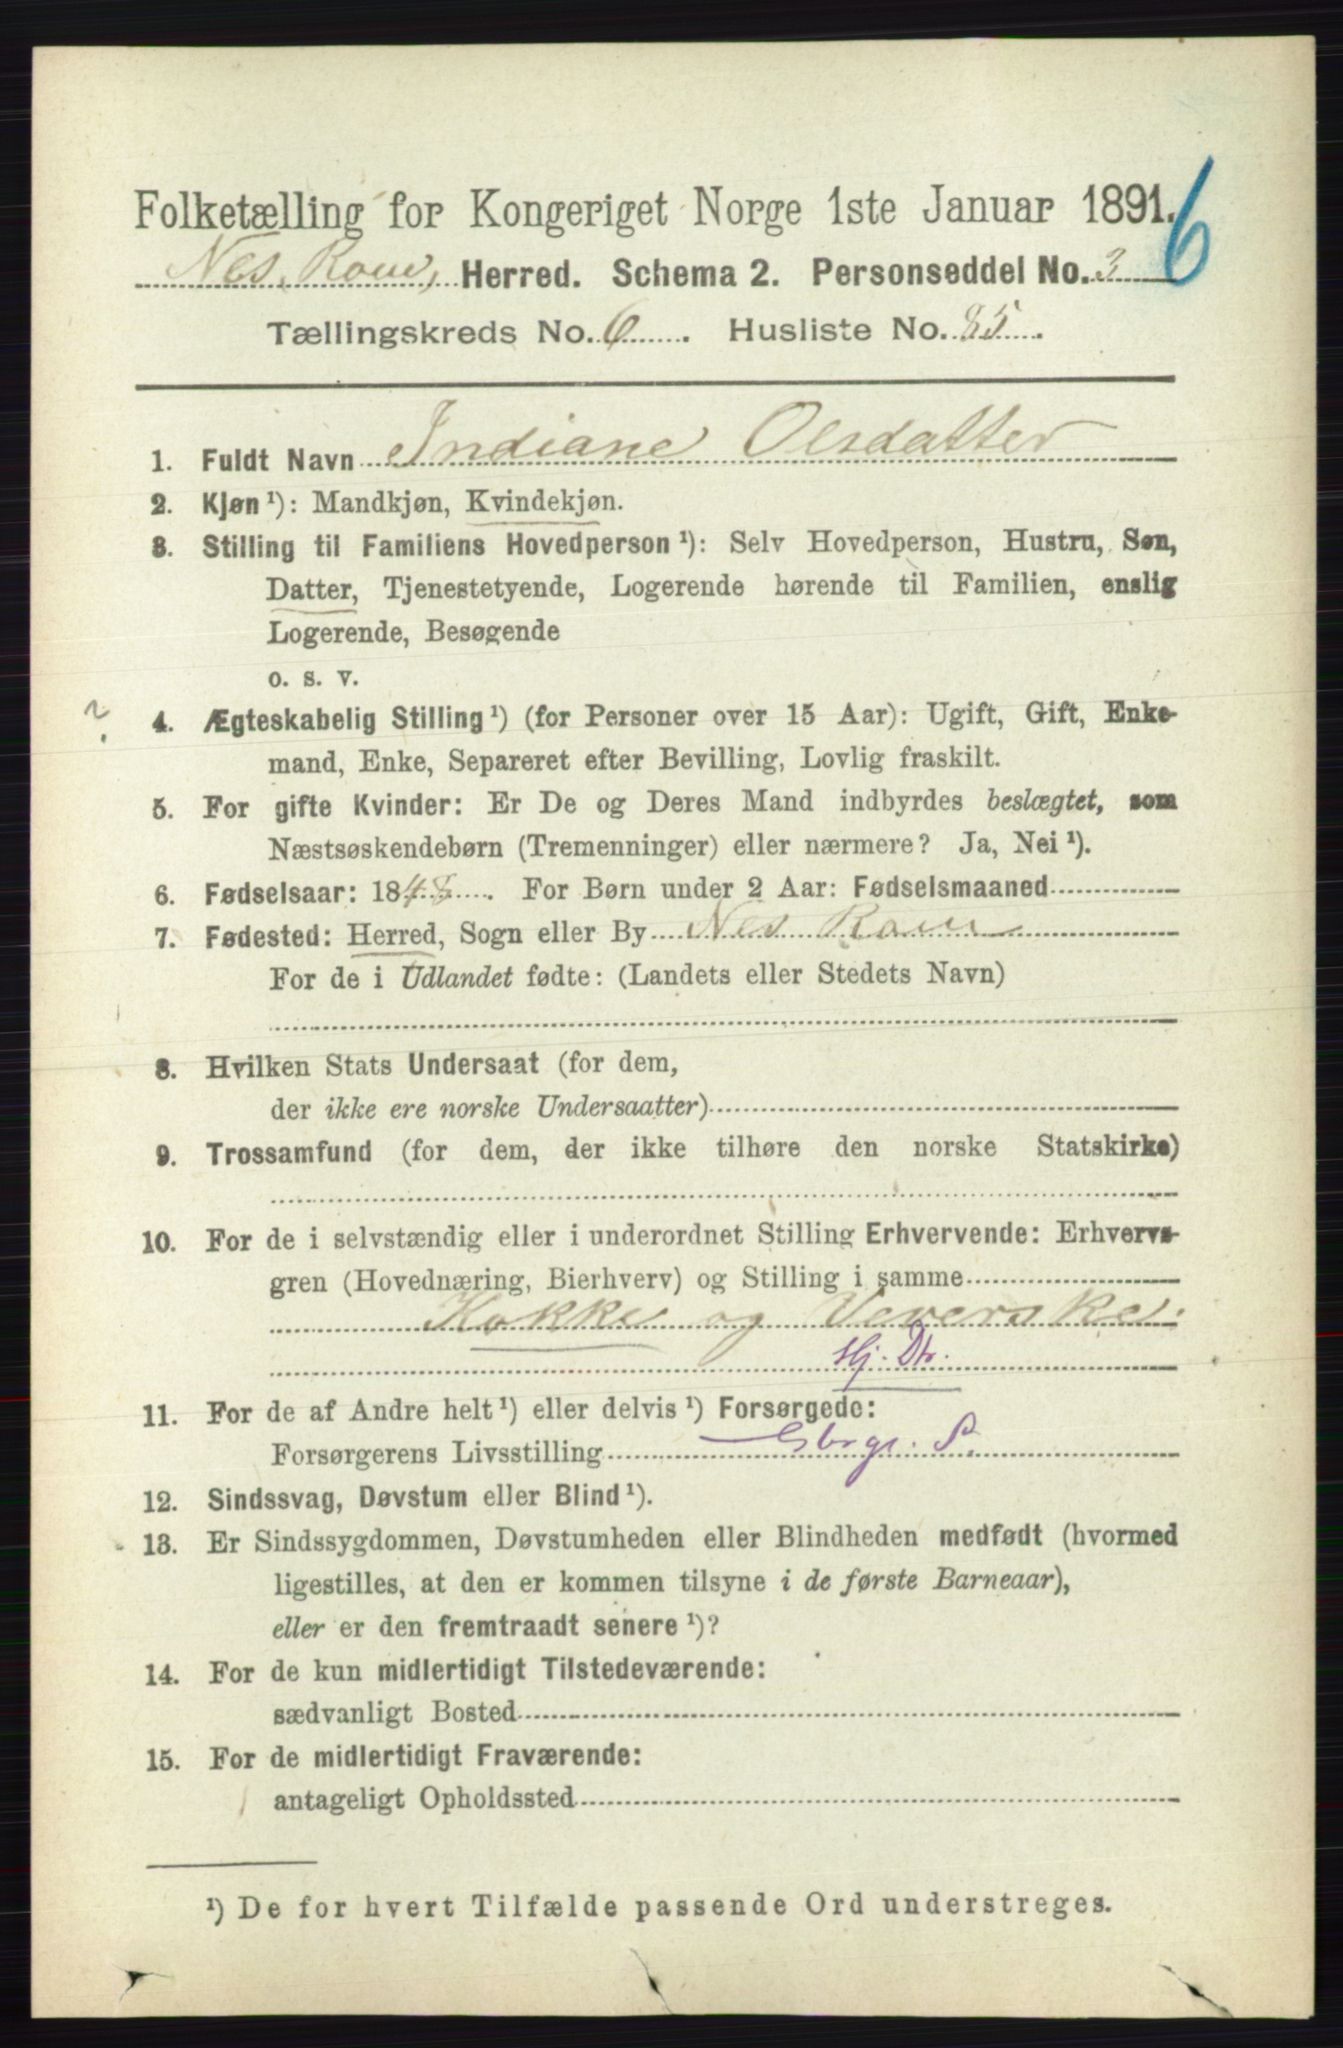 Folketælling for Kongeriget Norge 1ste Januar 1891.
6
Nes, Rom, Herred. Schema 2. Personseddel No. 3
Tællingskreds No. 6. Husliste No. 85.
1. Fuldt Navn Indiane Olsdatter
2. Kjøn ¹): Mandkjøn, Kvindekjøn.
3. Stilling til Familiens Hovedperson ¹): Selv Hovedperson, Hustru, Søn,
Datter, Tjenestetyende, Logerende hørende til Familien, enslig
Logerende, Besøgende
o. s. v.
?
4. Ægteskabelig Stilling ¹) (for Personer over 15 Aar): Ugift, Gift, Enke-
mand, Enke, Separeret efter Bevilling, Lovlig fraskilt.
5. For gifte Kvinder: Er De og Deres Mand indbyrdes beslægtet, som
Næstsøskendebørn (Tremenninger) eller nærmere? Ja, Nei ¹).
6. Fødselsaar: 1848. For Børn under 2 Aar: Fødselsmaaned
7. Fødested: Herred, Sogn eller By Nes Rom
For de i Udlandet fødte: (Landets eller Stedets Navn)
8. Hvilken Stats Undersaat (for dem,
der ikke ere norske Undersaatter)
9. Trossamfund (for dem, der ikke tilhøre den norske Statskirke)
10. For de i selvstændig eller i underordnet Stilling Erhvervende: Erhvervs-
gren (Hovednæring, Bierhverv) og Stilling i samme
Kokke og Veverske.
Hj. Dtr.
11. For de af Andre helt ¹) eller delvis ¹) Forsørgede:
Forsørgerens Livsstilling Gbrgr. S.
12. Sindssvag, Døvstum eller Blind ¹).
13. Er Sindssygdommen, Døvstumheden eller Blindheden medfødt (hvormed
ligestilles, at den er kommen tilsyne i de første Barneaar),
eller er den fremtraadt senere ¹)?
14. For de kun midlertidigt Tilstedeværende:
sædvanligt Bosted
15. For de midlertidigt Fraværende:
antageligt Opholdssted
¹) De for hvert Tilfælde passende Ord understreges.